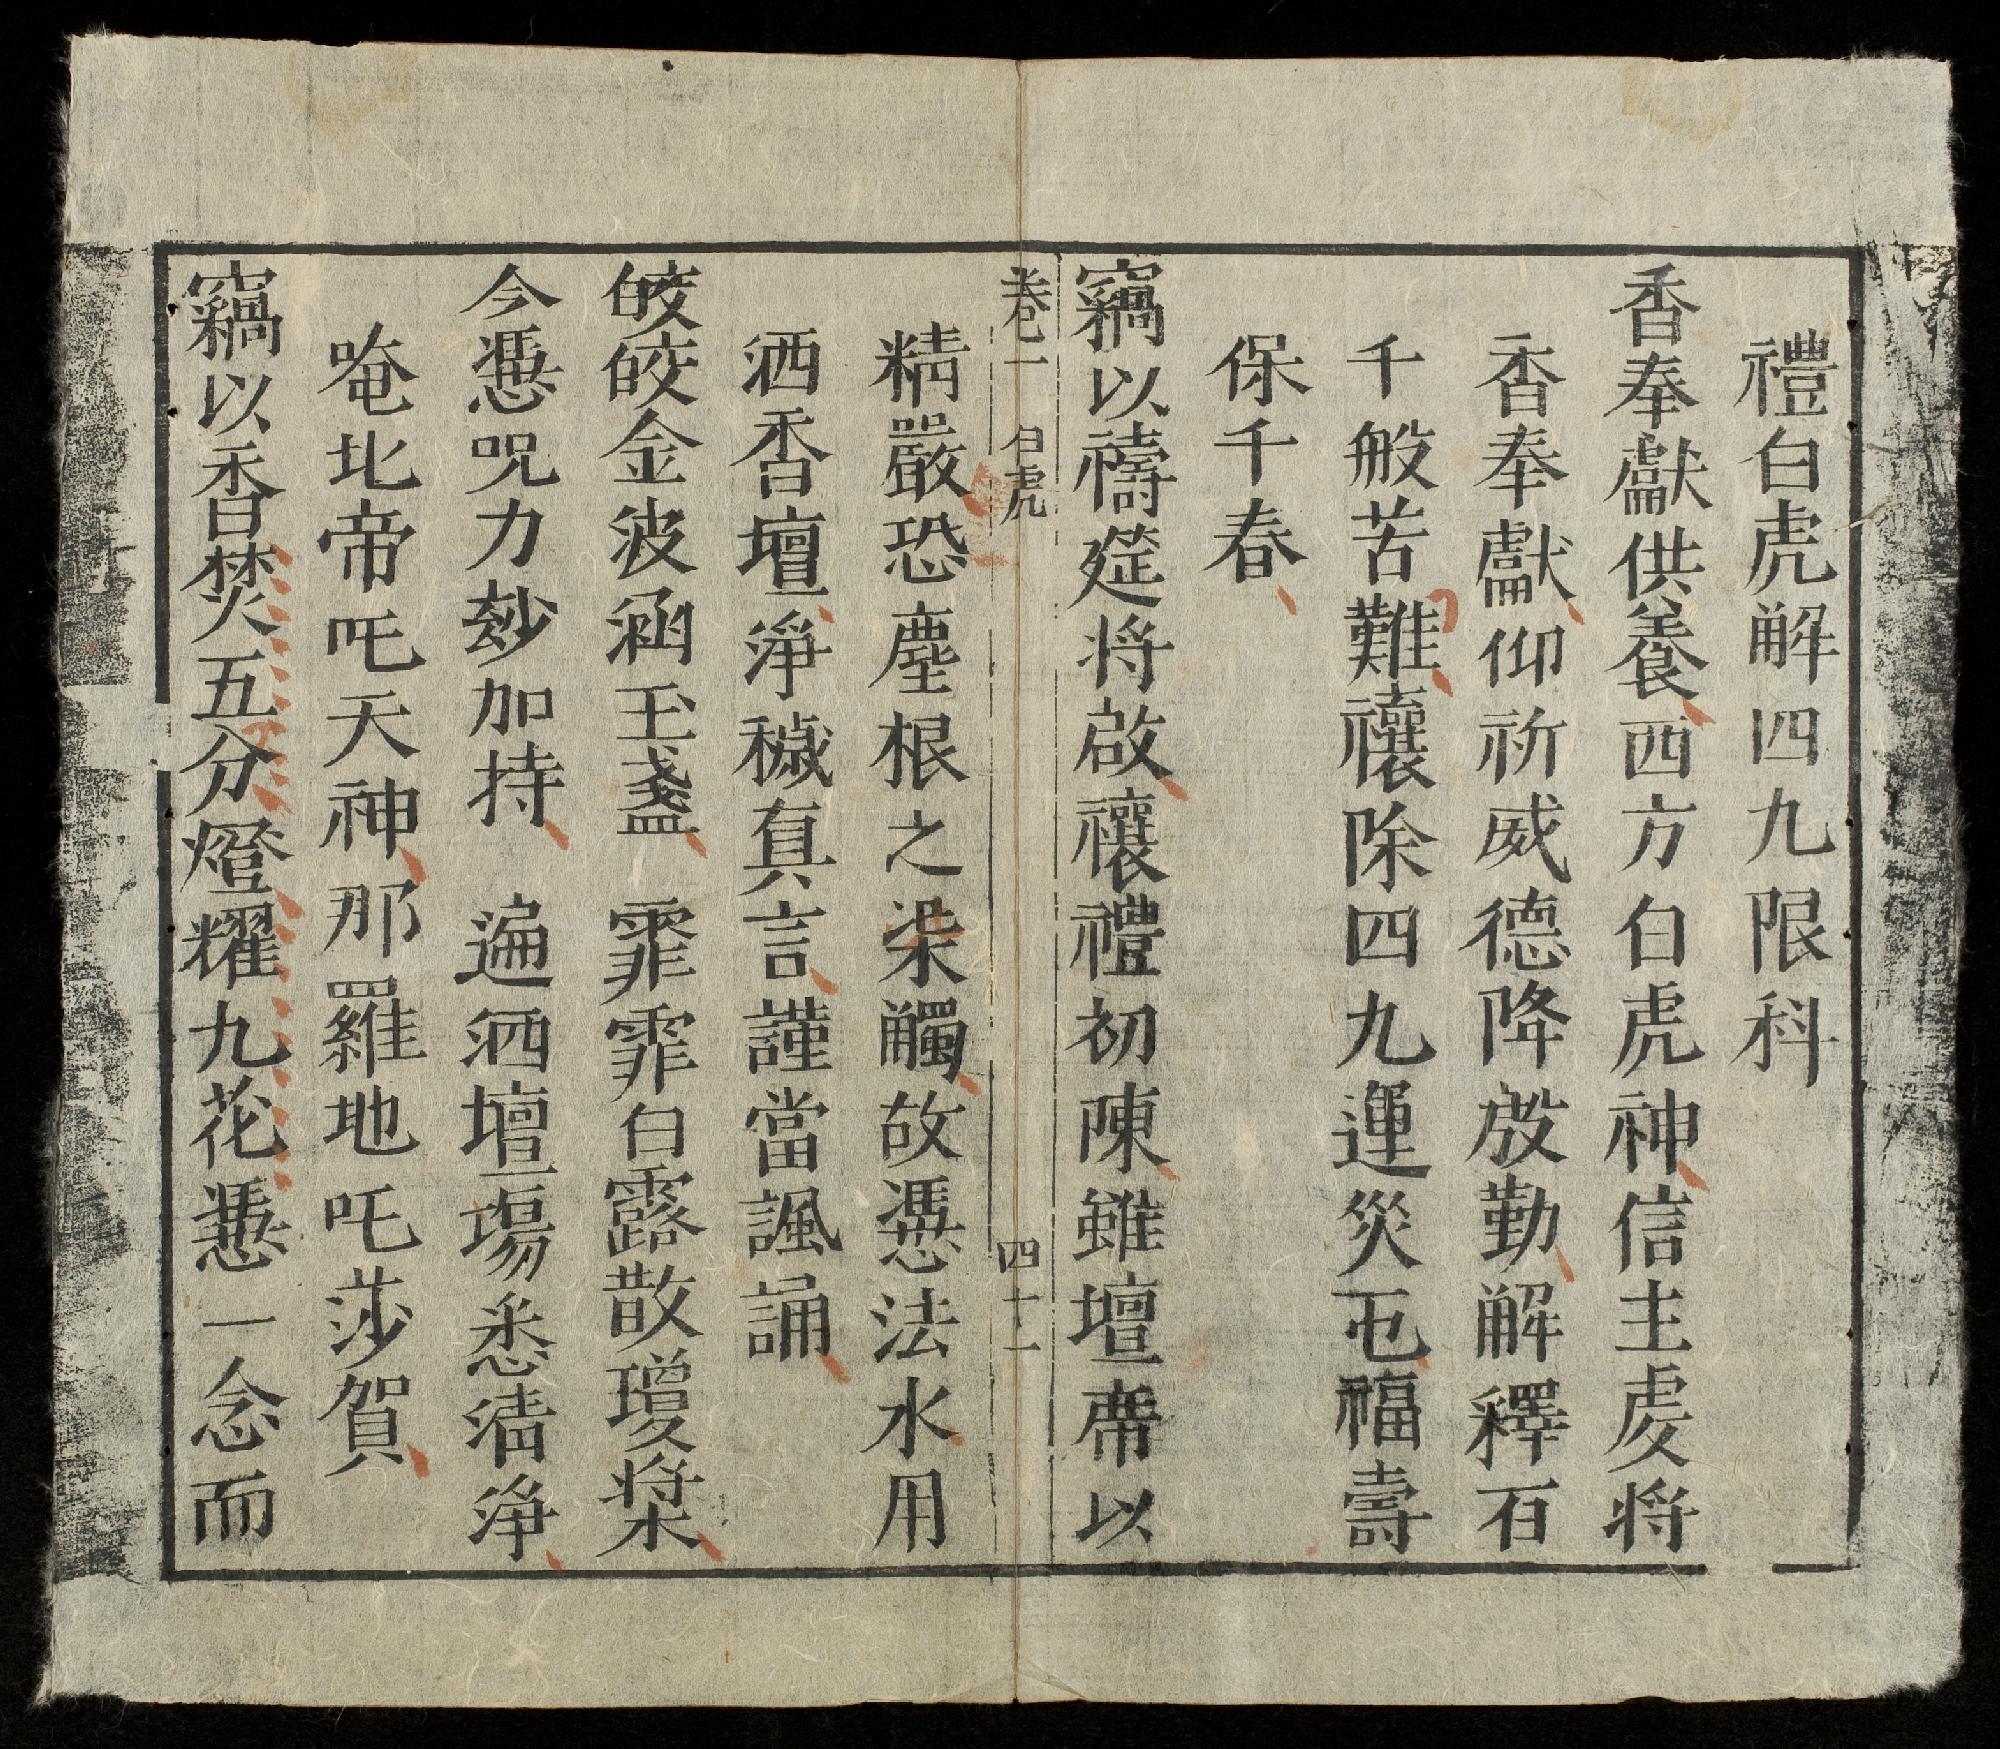 禮白虎解四九限科
香奉獻供養西方白虎神信主虔將
香奉獻仰祈威德降慇勤解釋百
千般苦難禳除四九運災屯福壽
保千春
竊以禱筵將啟禳禮初陳雖壇席以
卷一 白虎 四十一
精嚴恐塵根之染觸故憑法水用
洒香壇淨穢真言謹當諷誦
皎皎金波涵玉盞 霏霏白露散瓊漿
今憑咒力玅加持 遍洒壇場悉清淨
唵北帝吒天神那羅地吒莎賀
竊以香焚五分燈耀九花憑一念而